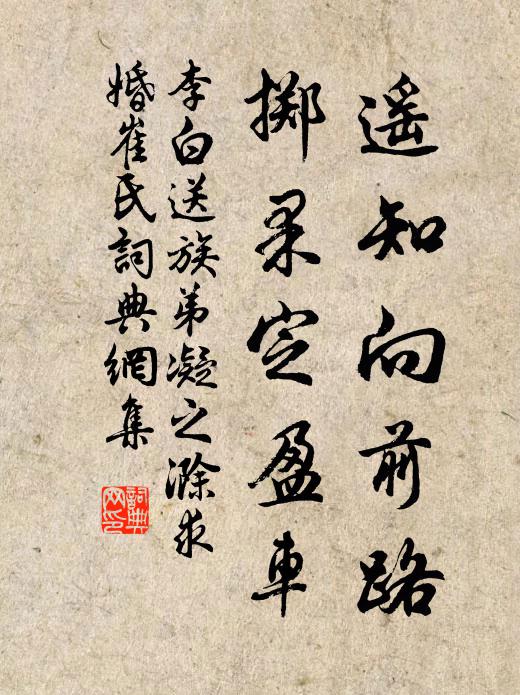 遥知向前路
擲果定盈車
李白送族弟凝之滁求
婚崔氏詞典網集
詞典
网印